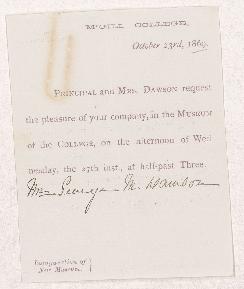 McGILL COLLEGE,
October 23rd, 1869.
PRINCIPAL and MRS. DAWSON request
the pleasure of your company, in the MUSEUM
of the COLLEGE, on the afternoon of Wed
nesday, the 27th inst., at half-past Three.
George M. Dawson
Inauguration of
New Museum.